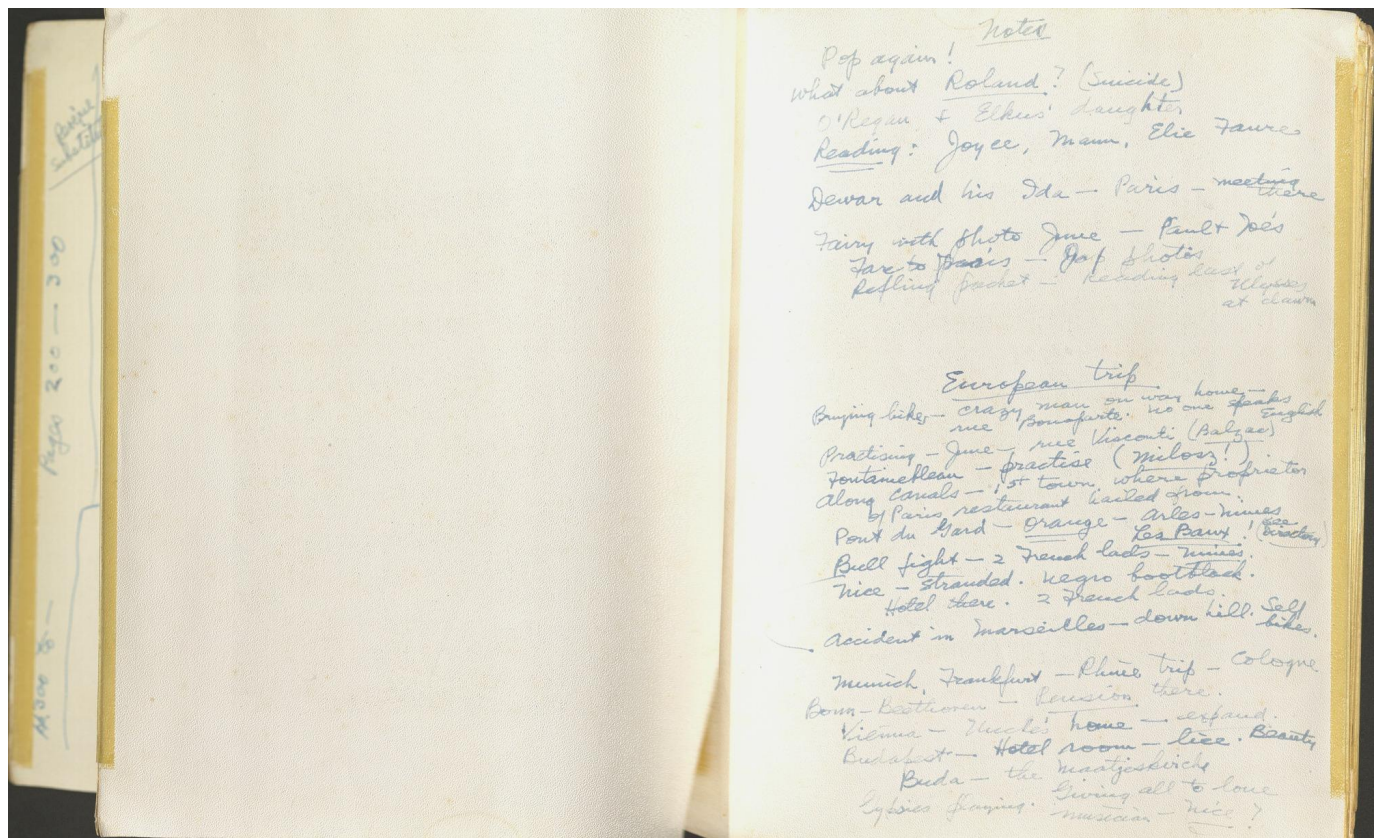 Revise
Pages 200 — 300
Notes
Pop again!
What about Roland? (Suicide)
O'Regan & Elkus' daughter
Reading: Joyce, Mann, Elie Faure
Dewar and his Ida — Paris — meeting
there
Fairy with photo June — Paul & Joe's
Fare to Paris — Jap photos
Rifling pocket — Reading last of
Ulysses
at dawn
European trip
Buying bikes — crazy man on way home —
rue Bonaparte. No one speaks
English
Practising — June — rue Visconti (Balzac)
Fontainebleau — practise (Milosz!)
Along canals — 1st town where proprietor
of Paris restaurant hailed from.
Pont du Gard — Orange — Arles — Nimes
Les Baux! (see
Bull fight — 2 French lads — Nimes.
Nice — stranded. Negro bootblack.
Hotel there. 2 French lads.
Accident in Marseilles — down hill. Sell
bikes.
Munich, Frankfurt — Rhine trip — Cologne
Bonn — Beethoven — Pension there.
Vienna — Uncle's home — expand.
Budapest — Hotel room — lice. Beauty
Buda — the
Giving all to love
Gypsies playing. Musician — Nice?